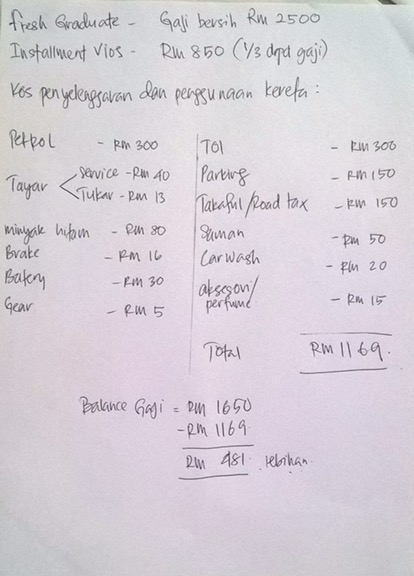 fresh Graduate - Gaji bersih RM 2500
Installment Vios - RM 850 (1/3 drpd gaji)
Kos penyelenggaraan dan penggunaan kereta :
Petrol - RM 300
Tayar < Service - RM 40
Tukar - RM 13
minyak hitam - RM 80
Brake - RM 16
Batery - RM 30
Gear - RM 5
TOl - RM 300
Parking - RM 150
Takaful/Road tax - RM 150
Saman - RM 50
Car wash - RM 20
aksesori/
perfume - RM 15
Total RM 1169.
Balance Gaji = RM 1650
- RM 1169.
RM 481. lebihan.